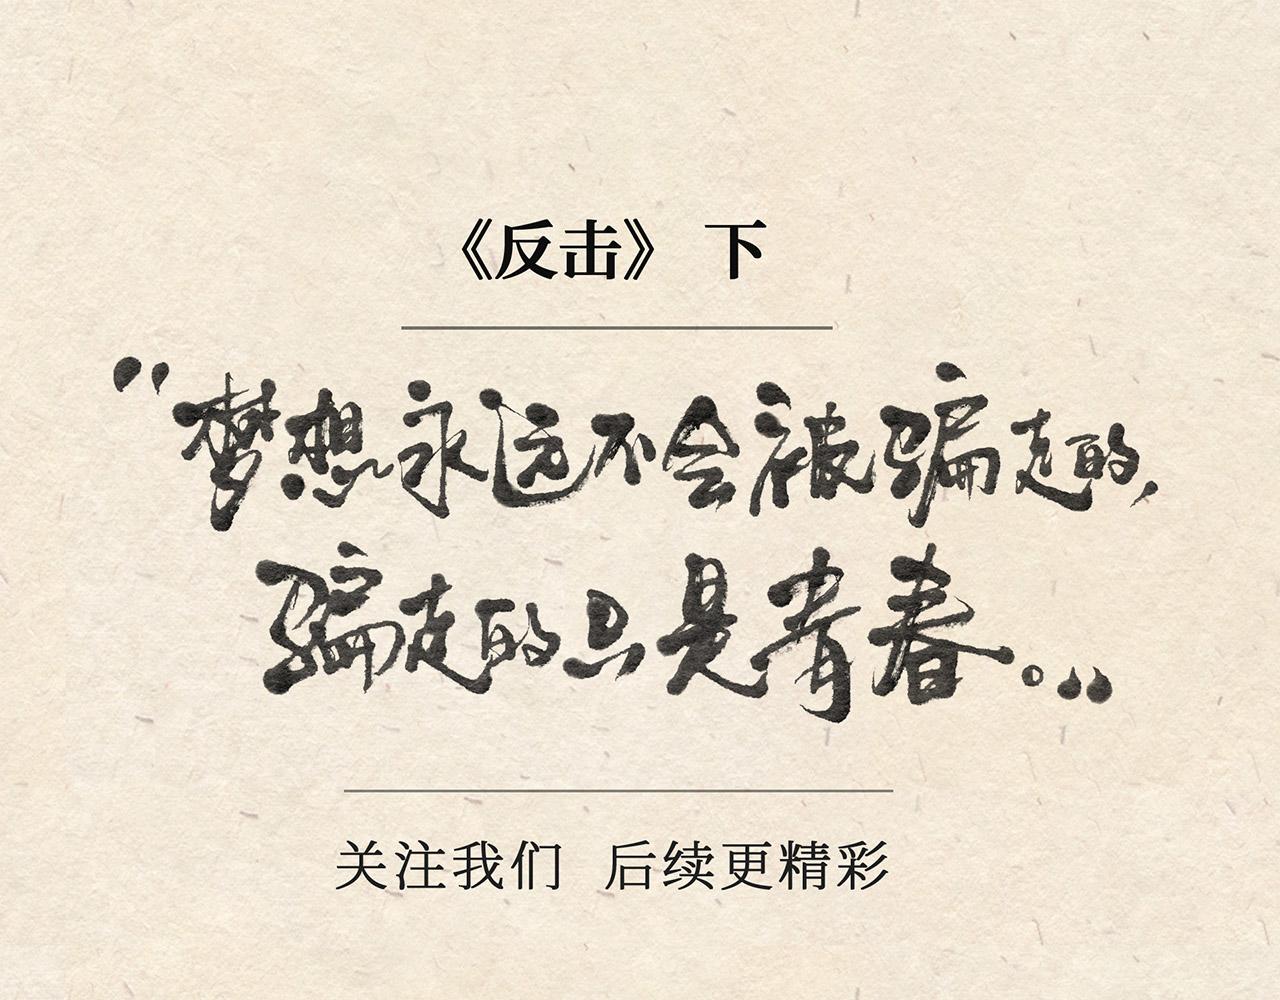 《反击》 下
“梦想永远不会被骗走的，
骗走的只是青春。”
关注我们 后续更精彩